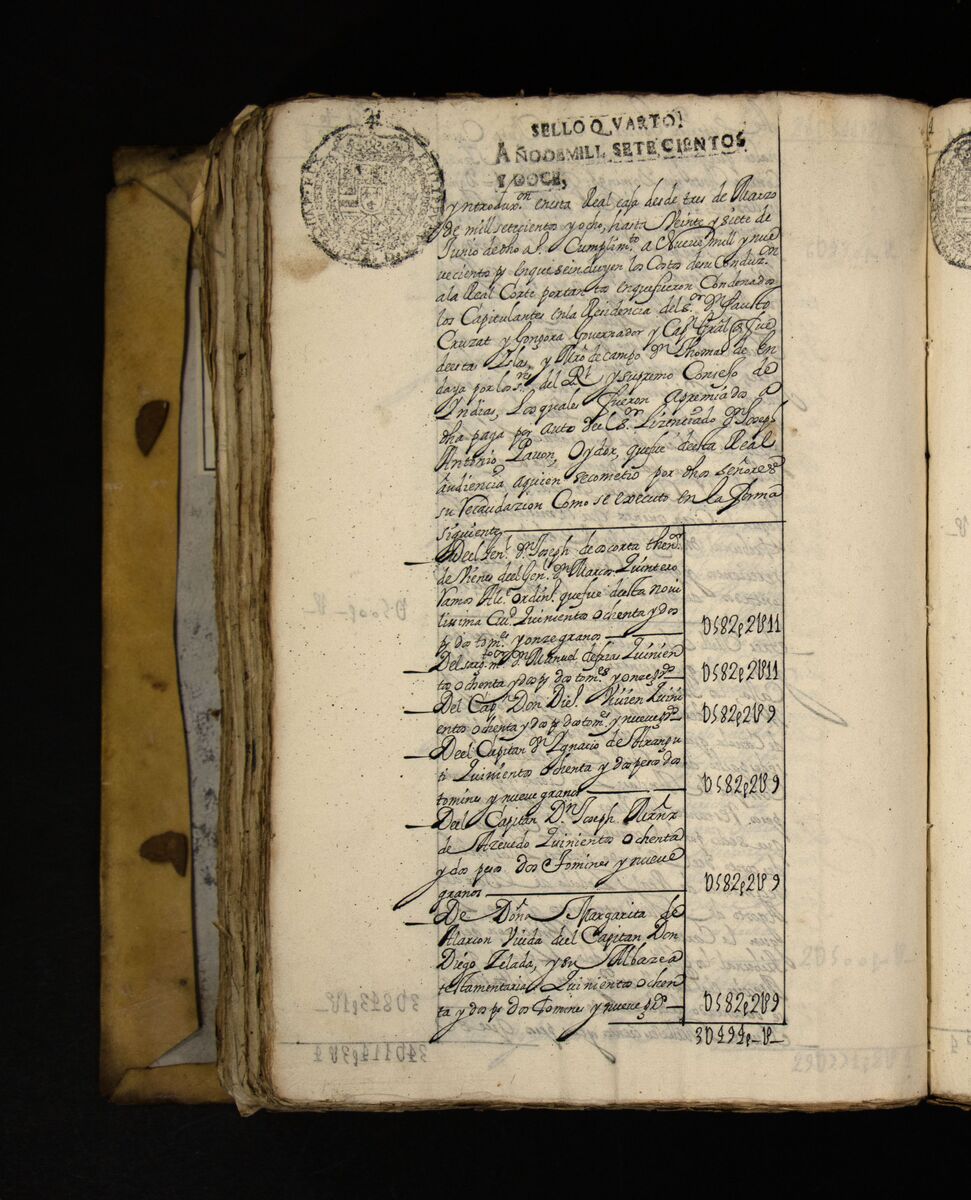 SELLO QVARTO,
AÑO DE MILL SETECIENTOS
Y DOCE,
yntrodux.on enesta Real caja desde tres de Marzo
de mill setecientos y ocho, hasta Veinte y siete de
Junio de dho a.º Cumplim.to a Nueve mill y nue
uecientos p.s enque seincluyen los Costos desu Conduz.on
ala Real Corte por tantos enquefueron Condenados
los Capitulantes enla Residencia del s.or D.n Fausto
Cruzat y Gongora Governador y Cap.n Gral q fue
deestas Yslas, y Mro de campo D.n Thomas de En
daya por los s.res del R.l y supremo Consejo de
Yndias, Los quales fueron apremiados a
dha paga por auto del s.or Lizenciado D.n Joseph
Antonio Pavon, Oydor, quefué desta Real
audiencia aquien secometió por dhos señores
su Recaudazion Como se executo en la forma
siguiente
Del Gen.l D.n Joseph de
de Vienes deel Gen.l D.n Marcos Quintero
Ramos Alc.e ordin.o quefue desta novi
lissima Ciu.d Quinientos Ochenta y dos
p.s dos tom.s y onze granos D582p2t11
Del sarg.to m.or D.n Manuel Quinien
tos ochenta y dos p.s dos tom.s y onze g.s D582p2t11
Del Cap.n Don Die.o Quini
entos ochenta y dos p.s dos tom.s y nueve g.s D582p2t9
Deel Capitan D.n Ygnacio de
Quinientos Ochenta y dos pesos dos
tomines y nueve granos D582p2t9
Del Capitan D.n Joseph Mrñz
de Azevedo Quinientos Ochenta
y dos pesos dos Tomines y nueve
granos D582p2t9
De Doña Margarita de
Alarcon Viuda deel Capitan Don
Diego Zelada, y su Albazea
testamentaria Quinientos ochen
ta y dos p.s dos Tomines y nueve g.s D582p2t9
3D494p-t-